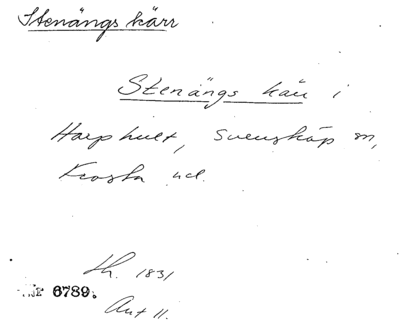 Stenängs kärr
Stenängs kärr i
Harphult, Svensköp sn,
Frosta hd.
lh. 1831
Nr 6789.
Akt 11.